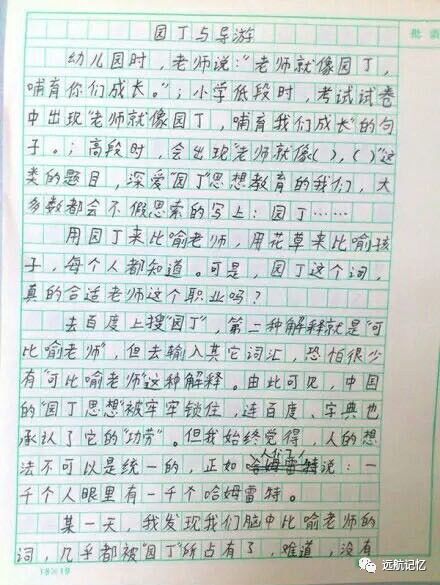 园丁与导游
批语
幼儿园时，老师说："老师就像园丁，
哺育你们成长。"；小学低段时，考试试卷
中出现"老师就像园丁，哺育我们成长"的句
子。；高段时，会出现"老师就像( )，( )"这
类的题目，深爱"园丁"思想教育的我们，大
多数都会不假思索的写上：园丁……
用园丁来比喻老师，用花草来比喻孩
子，每个人都知道。可是，园丁这个词，
真的合适老师这个职业吗？
去百度上搜"园丁"，第二种解释就是"可
比喻老师"，但去输入其它词汇，恐怕很少
有"可比喻老师"这种解释。由此可见，中国
的"园丁思想"被牢牢锁住，连百度、字典也
承认了它的"功劳"。但我始终觉得，人的想
人们
法不可以是统一的，正如哈姆雷特说：一
千个人眼里有一千个哈姆雷特。
某一天，我发现我们脑中比喻老师的
词，几乎都被"园丁"所占有了，难道，没有
18×19
远航记忆